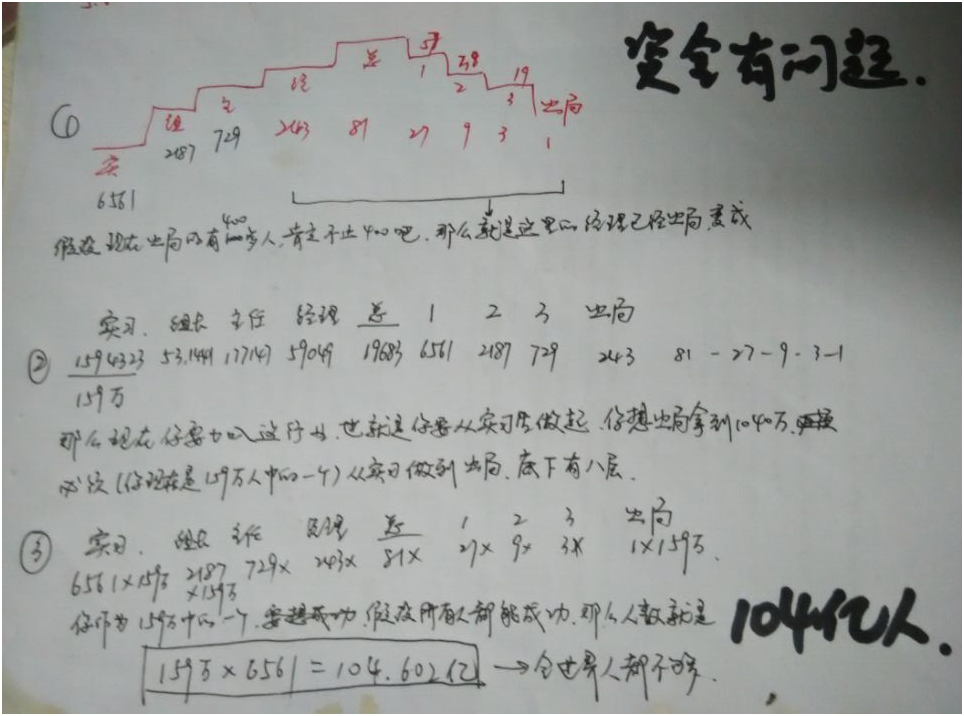 资金有问题.
57
总 1 38
经 2 19
主 3 出局
组
实
6561 2187 729 243 81 27 9 3 1
400
假设现在出局的有 多人,肯定不止400吧.那么就是这里的经理已经出局,变成
实习. 组长 主任 经理 总 1 2 3 出局
② 1594323 531441 177147 59049 19683 6561 2187 729 243 81 - 27 - 9 - 3 - 1
159万
那么现在你要加入这行业,也就是你要从实习生做起.你想出局拿到1040万.
必须(你现在是159万人中的一个)从实习做到出局.底下有八层.
③ 实习. 组长 主任 经理 总 1 2 3 出局
6561×159万 2187×159万 729× 243× 81× 27× 9× 3× 1×159万.
你作为159万中的一个.要想成功.假设所有人都能成功.那么人数就是
104亿人.
159万×6561=104.602亿 → 全世界人都不够.